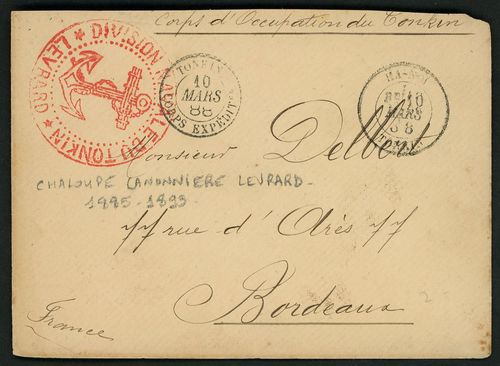 Corps d'Occupation du Tonkin
DIVISION NAVALE DU TONKIN * LEVRARD *
TONKIN
10
MARS
88
CORPS EXPEDIT
HA-NOI
10
MARS
88
Monsieur Delbert
CHALOUPE CANONNIERE LEVRARD -
1885-1893
77 rue d' Arès 77
Bordeaux
France
2 -